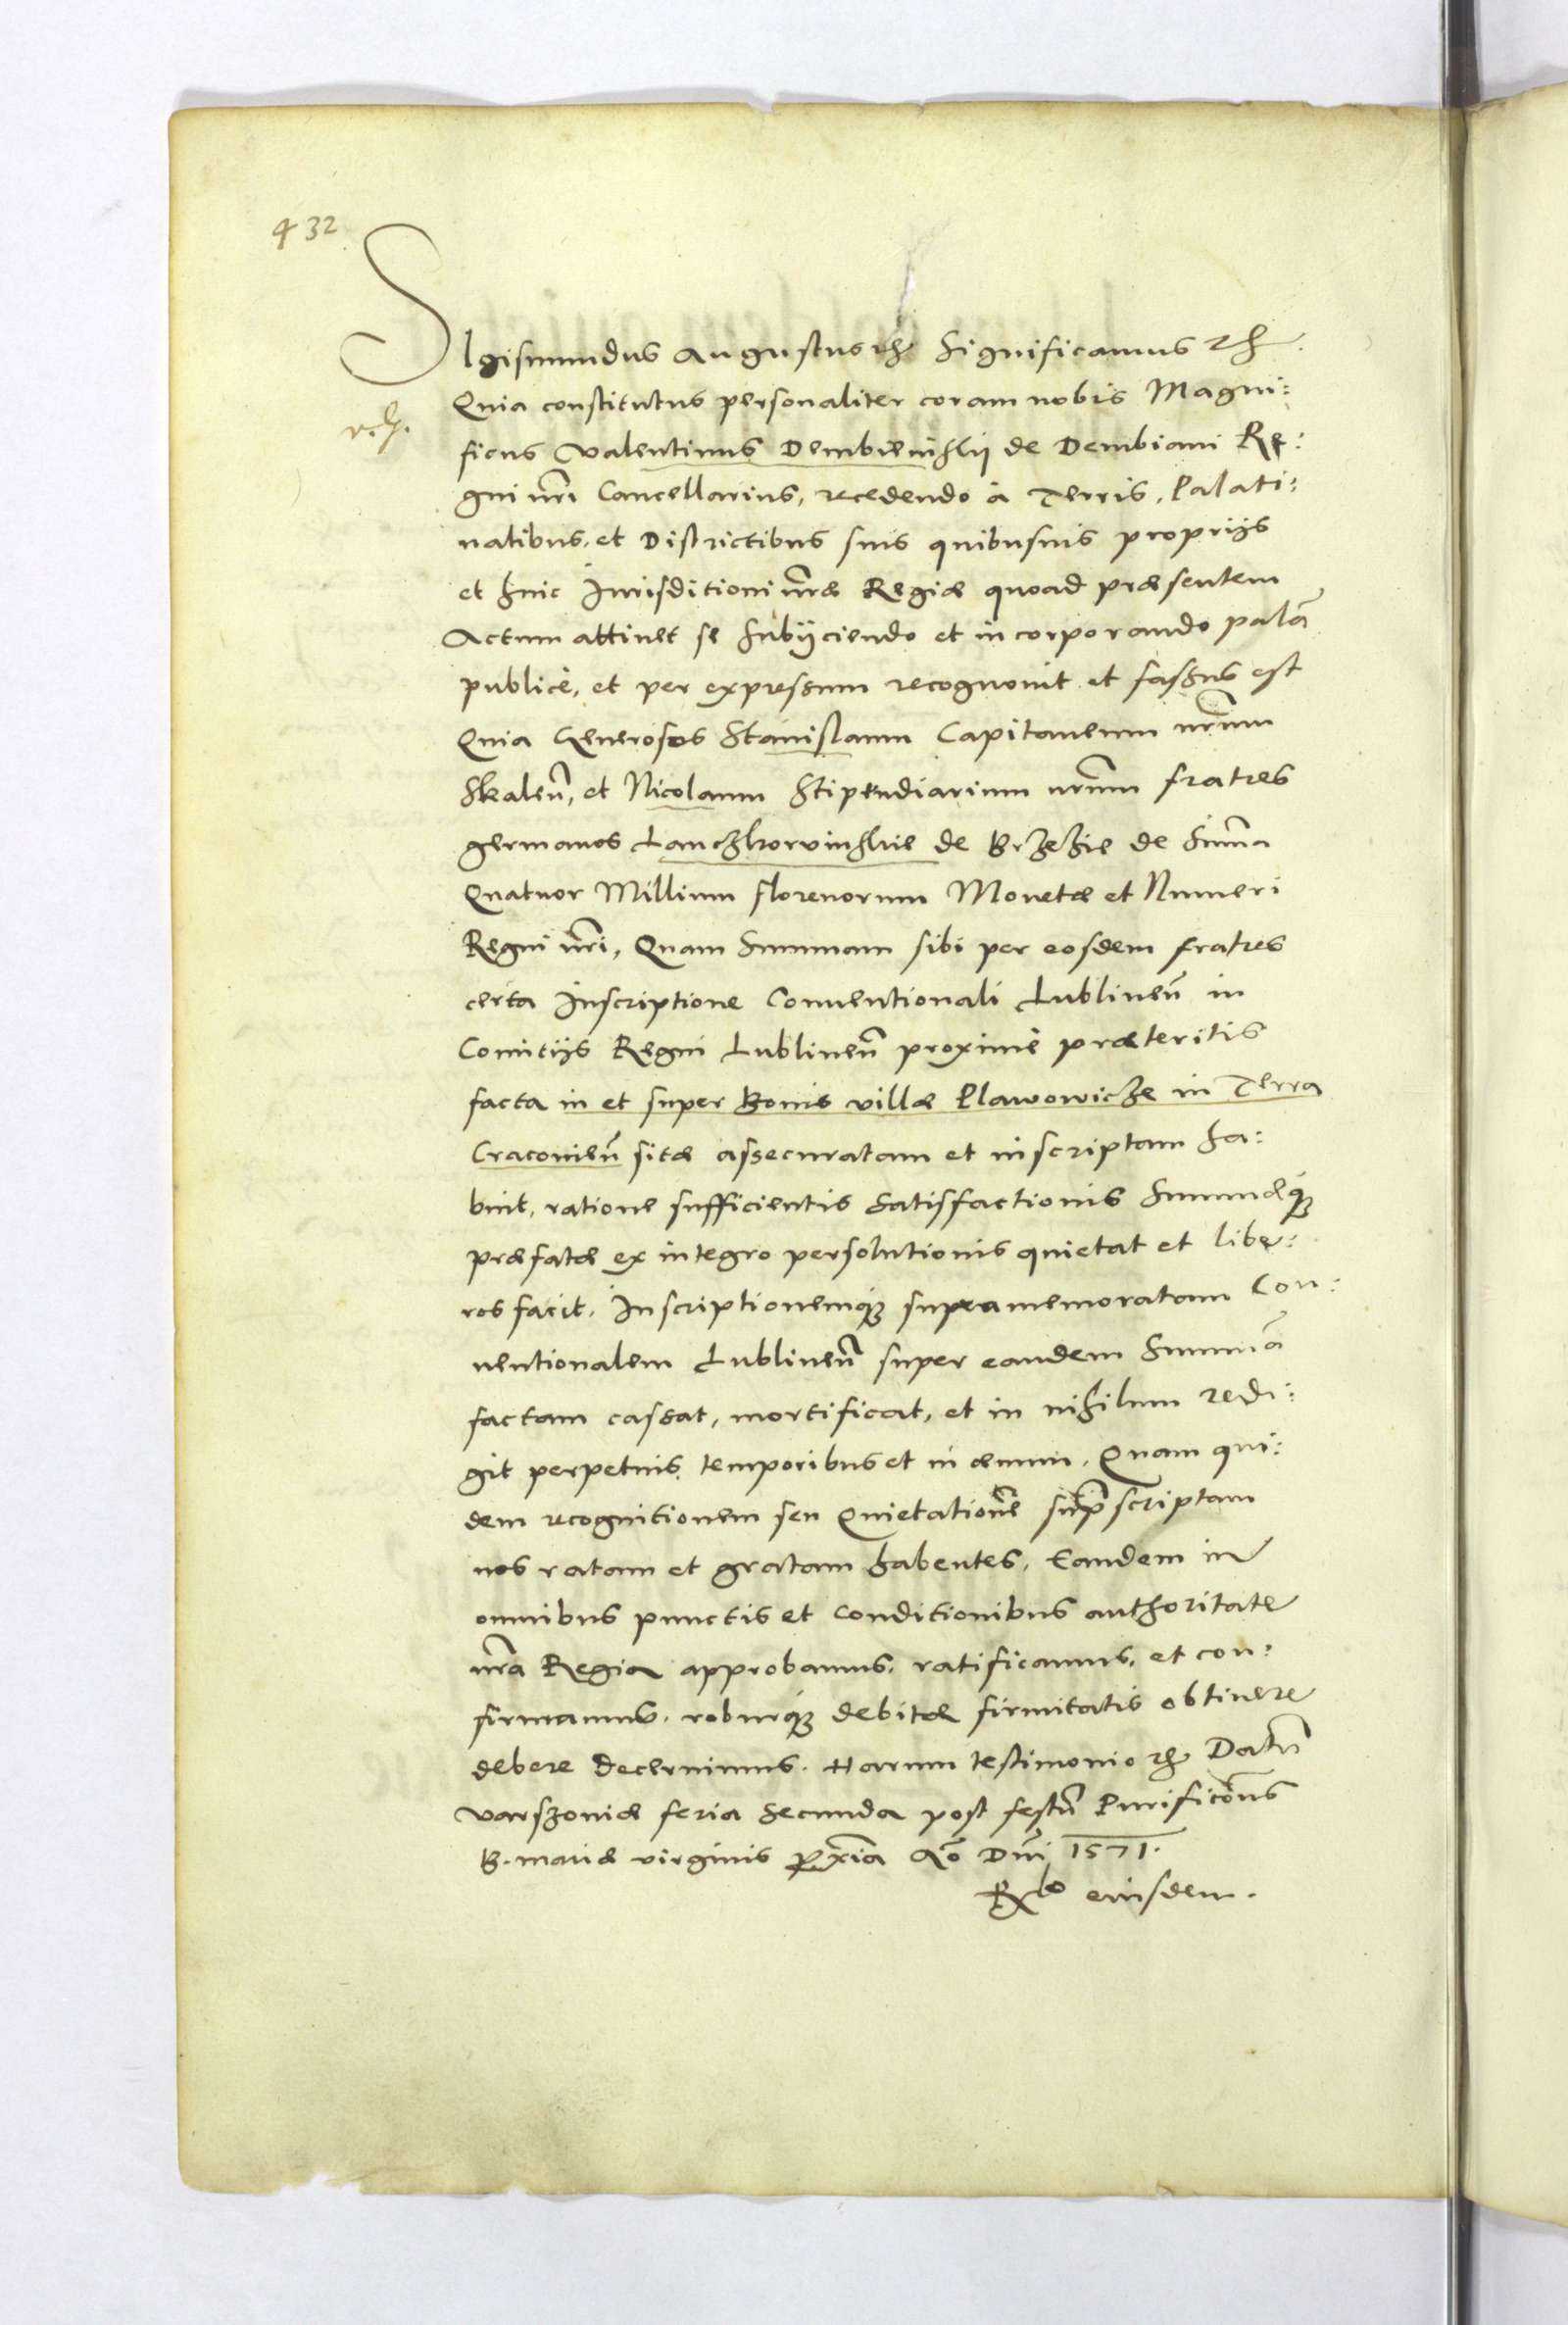 432
SIgismundus Augustus etc Significamus etc.
Quia constitutus personaliter coram nobis Magni:
ficus Valentinus Dembieńskij de Dembiani Re:
gni nri Cancellarius, recedendo à Terris, Palati:
natibus, et Districtibus suis quibusuis proprijs
et huic Iurisditioni nræ Regiæ quoad præsentem
Actum attinet se subijciendo et incorporando palā
publicè, et per expressum recognouit et fassus est
Quia Generosos Stanislaum Capitaneum nrum
Skalen̄, et Nicolaum Stipendiarium nrum fratres
germanos Lanczkoruńskie de Brzezie de summa
Quatuor Millium florenorum Monetæ et Numeri
Regni nri, Quam Summam sibi per eosdem fratres
certa Inscriptione Conuentionali Lublinen̄ in
Comitijs Regni Lublinen̄ proximè præteritis
facta in et super Bonis villæ Plawowicze in Terra
Cracouien̄ sitæ assecuratam et inscriptam ha:
buit, ratione sufficientis satisfactionis Summæq
præfatæ ex integro persolutionis quietat et libe:
ros facit. Inscriptionemq supra memoratam Con:
uentionalem Lublinen̄ super eandem Summā
factam cassat, mortificat, et in nihilum redi:
git perpetuis temporibus et in æuum. Quam qui:
dem recognitionem seu Quietationē suprascriptam
nos ratam et gratam habentes, Eandem in
omnibus punctis et conditionibus authoritate
nra Regia approbamus, ratificamus, et con:
firmamus. roburq debitæ firmitatis obtinere
debere decernimus. Harum testimonio etc Datū
Varszouiæ feria secunda post festū Purificōnis
B. Mariæ virginis proxīa Aō Dnī 1571.
Rlo eiusdem.